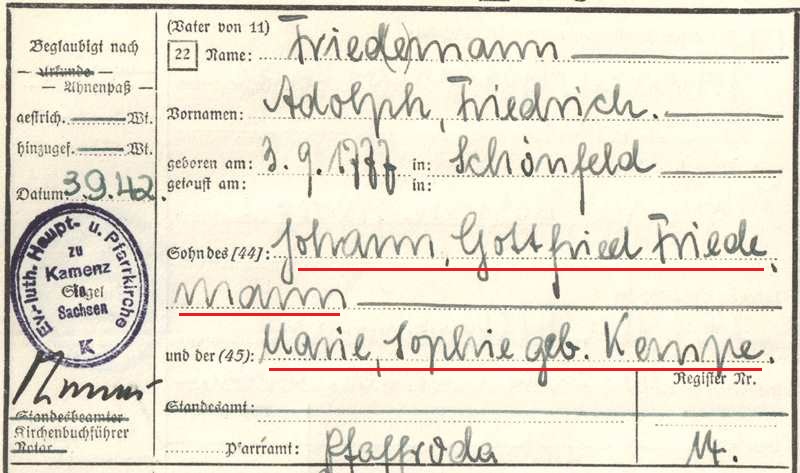 (Vater von 11)
Beglaubigt nach
Urkunde —
— Ahnenpaß —
22 Name: Friedemann
Vornamen: Adolph, Friedrich.
gestrich. Wt.
hinzugef. Wt.
geboren am: 3. 9. 1777 in: Schönfeld
getauft am: in:
Datum: 3.9.42.
Sohn des [44]: Johann, Gottfried Friede
mann
und der (45): Marie, Sophie geb. Kempe.
Ev.-luth. Haupt- u. Pfarrkirche
zu
Kamenz
Siegel
in
Sachsen
K
Register Nr.
Standesbeamter
Kirchenbuchführer
Notar
Standesamt:
Pfarramt: Pfaffroda 14.